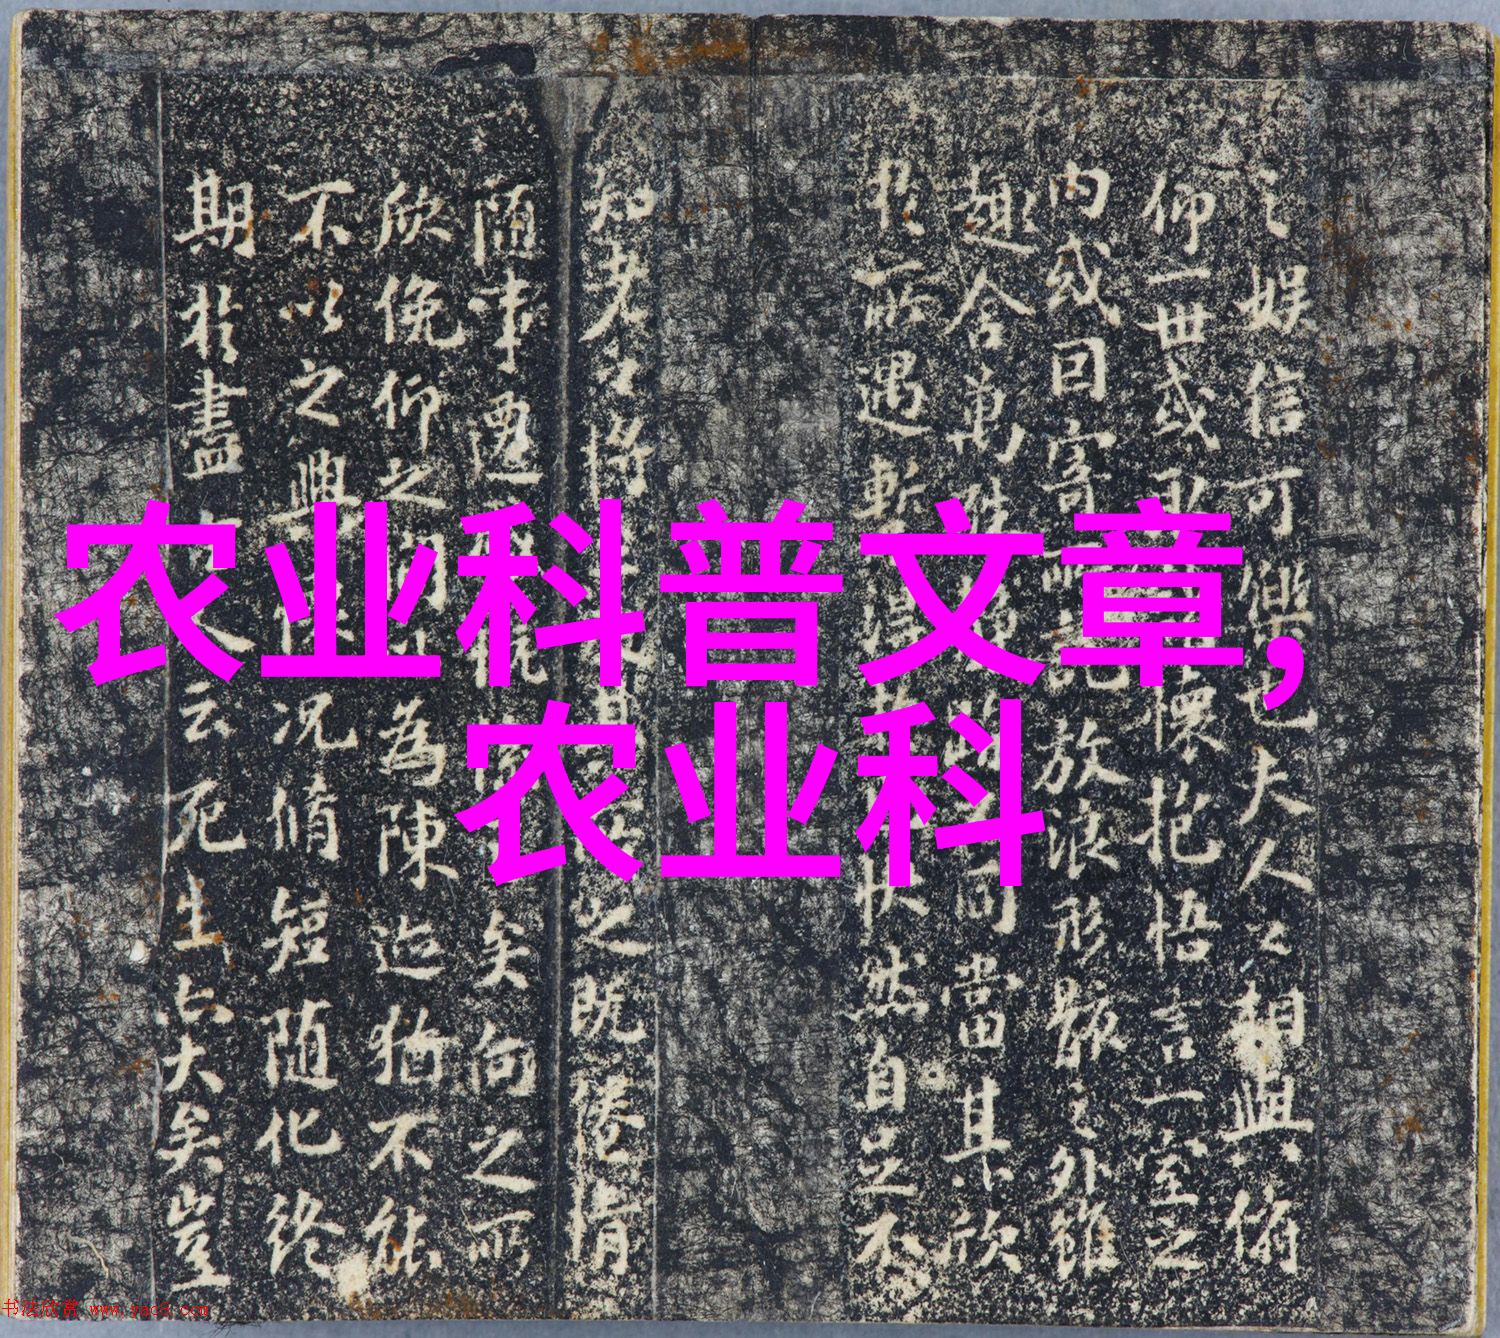 农业科普文章，
农业科
之娱信可樂也夫人之相與俯
仰一世或懷抱悟言一室之
内或因寄所託放浪形骸之外雖
趣舍萬殊同當其欣
於所遇暫得快然自足不
知老之將至其之既倦情
随事遷慨矣向之所
欣俛仰之間為陳迹猶不能
不以之興懷況脩短随化終
期於盡人云死生亦大矣豈
书法欣赏 www.yac8.com